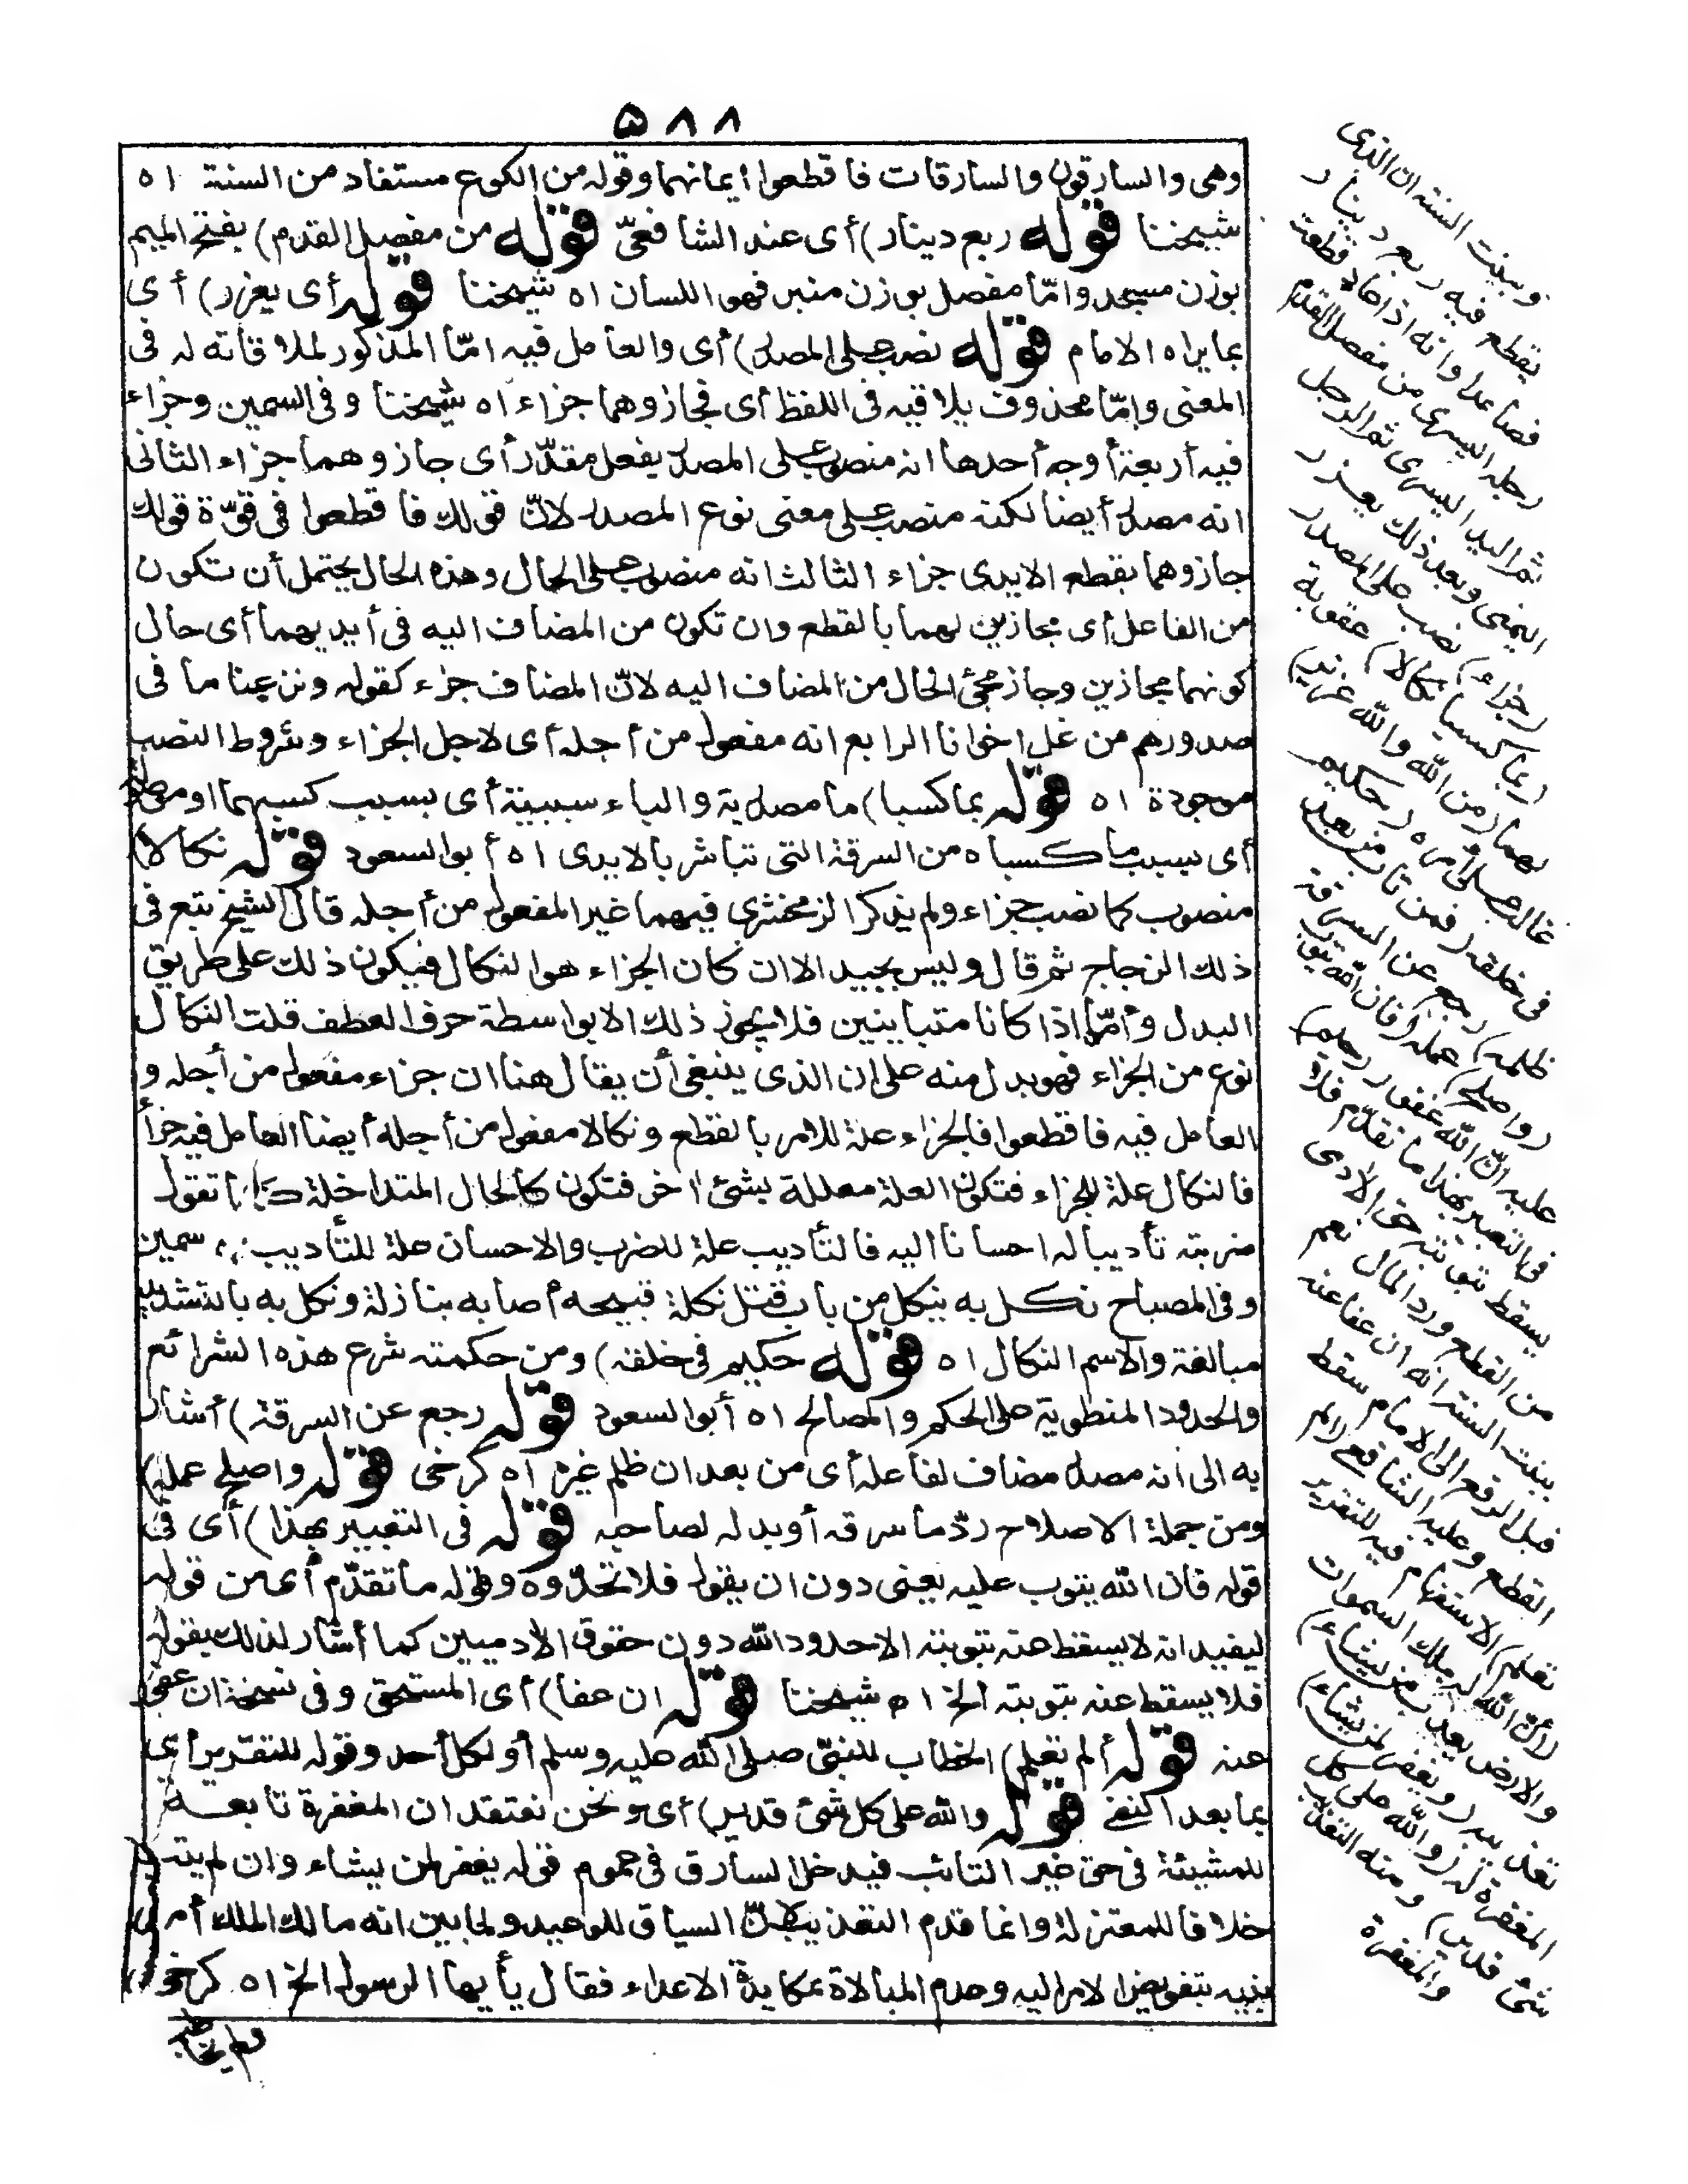 ٥٨٨
وهى والسارقون والسارقات فاقطعوا ايمانهما وقوله من الكوع مستفاد من السنة اه
شيخنا قوله ربع دينار) أى عند الشافعىّ قوله من مفصل القدم) بفتح الميم
بوزن مسجد وامّا مفصل بوزن منبر فهو اللسان اه شيخنا قوله أى يعزر) أى
بما يراه الامام قوله نصب على المصدر) أى والعامل فيه امّا المذكور لملاقاته له فى
المعنى وامّا محذوف يلاقيه فى اللفظ أى فجازوهما جزاء اه شيخنا وفى السمين وجزاء
فيه أربعة أوجه أحدها انه منصوب على المصدر بفعل مقدّر أى جازوهما جزاء الثانى
انه مصدر أيضا لكنه منصوب على معنى نوع المصدر لانّ قولك فاقطعوا فى قوّة قولك
جازوهما بقطع الايدى جزاء الثالث انه منصوب على الحال وهذه الحال يحتمل أن تكون
من الفاعل أى مجازين لهما بالقطع وان تكون من المضاف اليه فى أيديهما أى حال
كونهما مجازين وجاز مجئ الحال من المضاف اليه لانّ المضاف جزء كقوله ونزعنا ما فى
صدورهم من غل اخوانا الرابع انه مفعول من أجله أى لاجل الجزاء وشروط النصب
موجودة اه قوله بما كسبا) ما مصدرية والباء سببية أى بسبب كسبهما او موصولة
أى بسبب ما كسباه من السرقة التى تباشر بالايدى اه أبو السعود قوله نكالا)
منصوب كما نصب جزاء ولم يذكر الزمخشرى فيهما غير المفعول من أجله قال الشيخ تبع فى
ذلك الزجاج ثم قال وليس بجيد الا ان كان الجزاء هو النكال فيكون ذلك على طريق
البدل وأمّا اذا كانا متباينين فلا يجوز ذلك الا بواسطة حرف العطف قلت النكال
نوع من الجزاء فهو بدل منه على ان الذى ينبغى أن يقال هنا ان جزاء مفعول من أجله و
العامل فيه فاقطعوا فالجزاء علة للامر بالقطع ونكالا مفعول من أجله أيضا العامل فيه جزاء
فالنكال علة للجزاء فتكون العلة معللة بشئ اخر فتكون كالحال المتداخلة كما تقول
ضربته تأديبا له احسانا اليه فالتأديب علة للضرب والاحسان علة للتأديب سمين
وفى المصباح نكل به ينكل من باب قتل نكلة قبيحة أصابه بنازلة ونكل به بالتشديد
مبالغة والاسم النكال اه قوله حكيم فى خلقه) ومن حكمته شرع هذه الشرائع
والحدود المنطوية على الحكم والمصالح اه أبو السعود قوله رجع عن السرقة) أشار
به الى انه مصدر مضاف لفاعله أى من بعد ان ظلم غيره اه كرخى قوله واصلح عمله)
ومن جملة الاصلاح ردّ ما سرقه أو بدله لصاحبه قوله فى التعبير بهذا) أى فى
قوله فان الله يتوب عليه يعنى دون ان يقول فلا تحدّوه وقوله ما تقدّم أى من قوله
ليفيد انه لا يسقط عنه بتوبته الا حدود الله دون حقوق الادميين كما أشار لذلك بقوله
فلا يسقط عنه بتوبته الخ اه شيخنا قوله ان عفا) أى المستحق وفى نسخة ان عفى
عنه قوله ألم تعلم) الخطاب للنبىّ صلى الله عليه وسلم أو لكل أحد وقوله للتقرير أى
بما بعد النفى قوله والله على كل شئ قدير) أى ونحن نعتقد ان المغفرة تابعة
للمشيئة فى حق غير التائب فيدخل السارق فى عموم قوله يغفر لمن يشاء وان لم يتب
خلافا للمعتزلة وانما قدم التعذيب لانّ السياق للوعيد ولما بين انه مالك الملك أمر
نبيه بتفويض الامر اليه وعدم المبالاة بمكايدة الاعداء فقال يأيها الرسول الخ اه كرخى
وبينت السنة ان الذى
يقطع فيه ربع دينار
فصاعدا وانه اذا عاد قطعت
رجله اليسرى من مفصل القدم
ثم اليد اليسرى ثم الرجل
اليمنى وبعد ذلك يعزر
(جزاء) نصب على المصدر
(بما كسبا نكالا) عقوبة
لهما (من الله والله عزيز)
غالب على أمره (حكيم)
فى خلقه (فمن تاب من بعد
ظلمه) رجع عن السرقة
(واصلح) عمله (فان الله يتوب
عليه انّ الله غفور رحيم)
فى التعبير بهذا ما تقدّم فلا
يسقط بتوبته حق الادمى
من القطع وردّ المال نعم
بينت السنة انه ان عفا عنه
قبل الرفع الى الامام سقط
القطع وعليه الشافعى (الم
تعلم) الاستفهام فيه للتقرير
(أنّ الله له ملك السموات
والارض يعذب من يشاء)
تعذيبه (ويغفر لمن يشاء)
المغفرة له (والله على كل
شئ قدير) ومنه التعذيب
والمغفرة